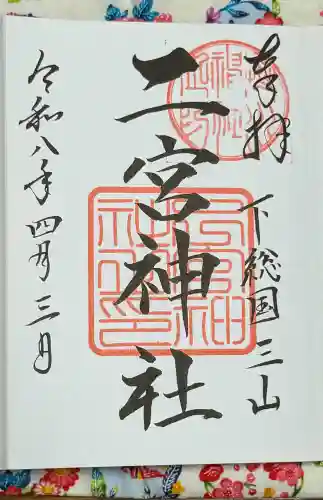 奉拝
下総国三山
二宮神社
令和八年四月三日